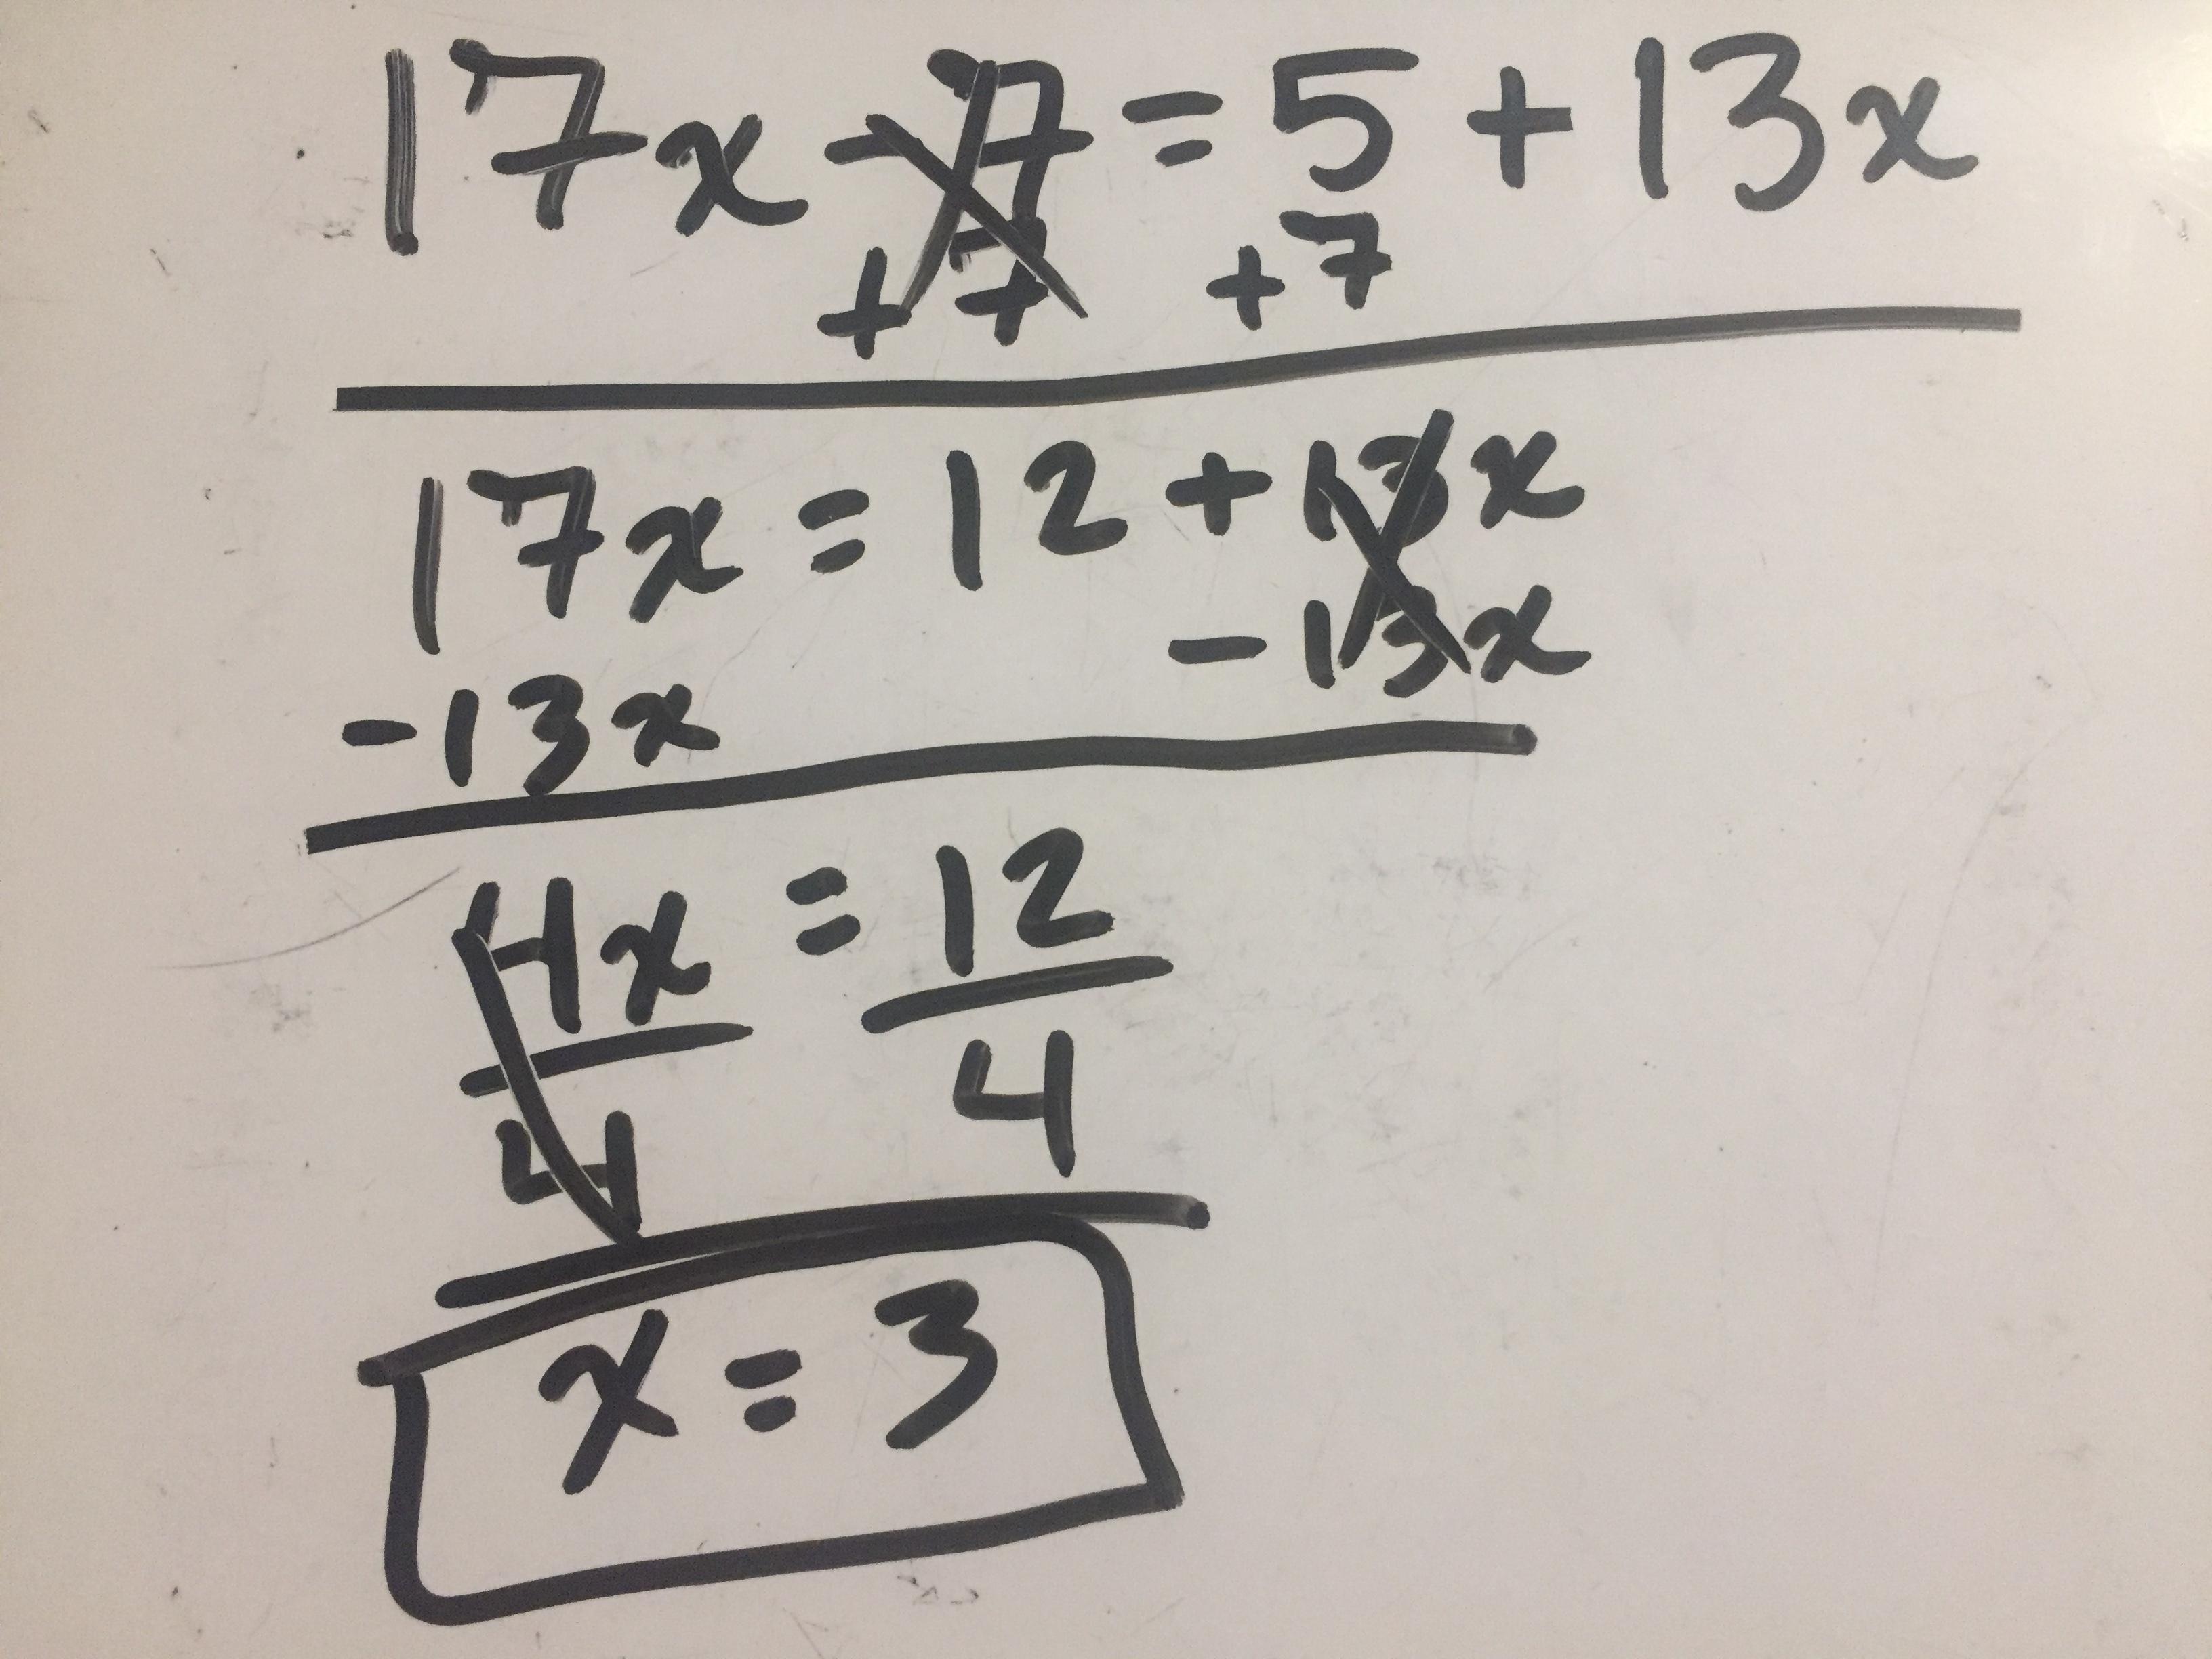 17x - 7 = 5 + 13x
+ 7 +7
17x = 12 + 13x
- 13x
-13x
4x = 12
4 4
x = 3